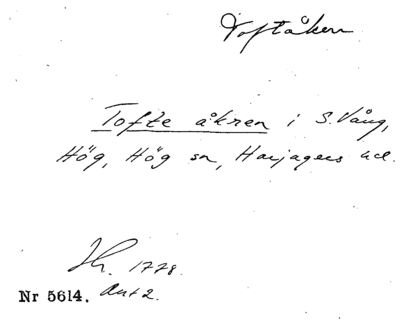 Toftåkern
Tofte åkren i S. Vång,
Hög, Hög sn, Harjagers hd.
Hr. 1778.
Nr 5614. Akt 2.